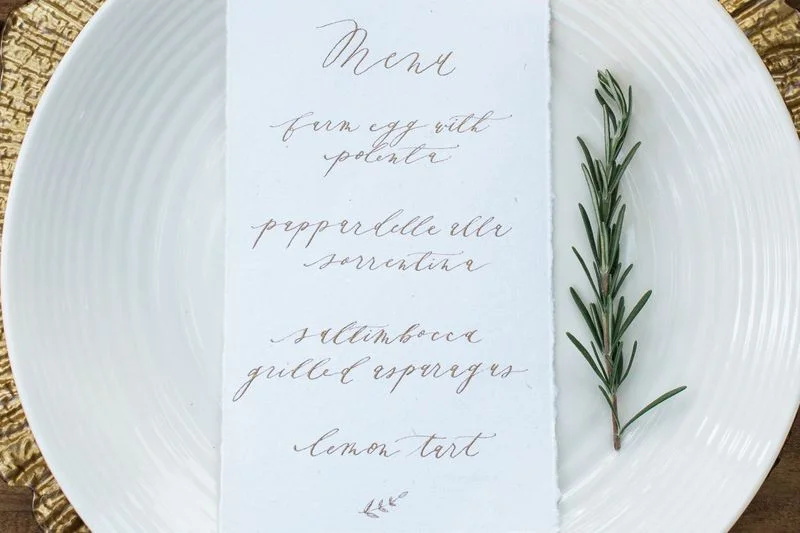 Menu
farm egg with
polenta
pappardelle alla
sorrentina
saltimbocca
grilled asparagus
lemon tart